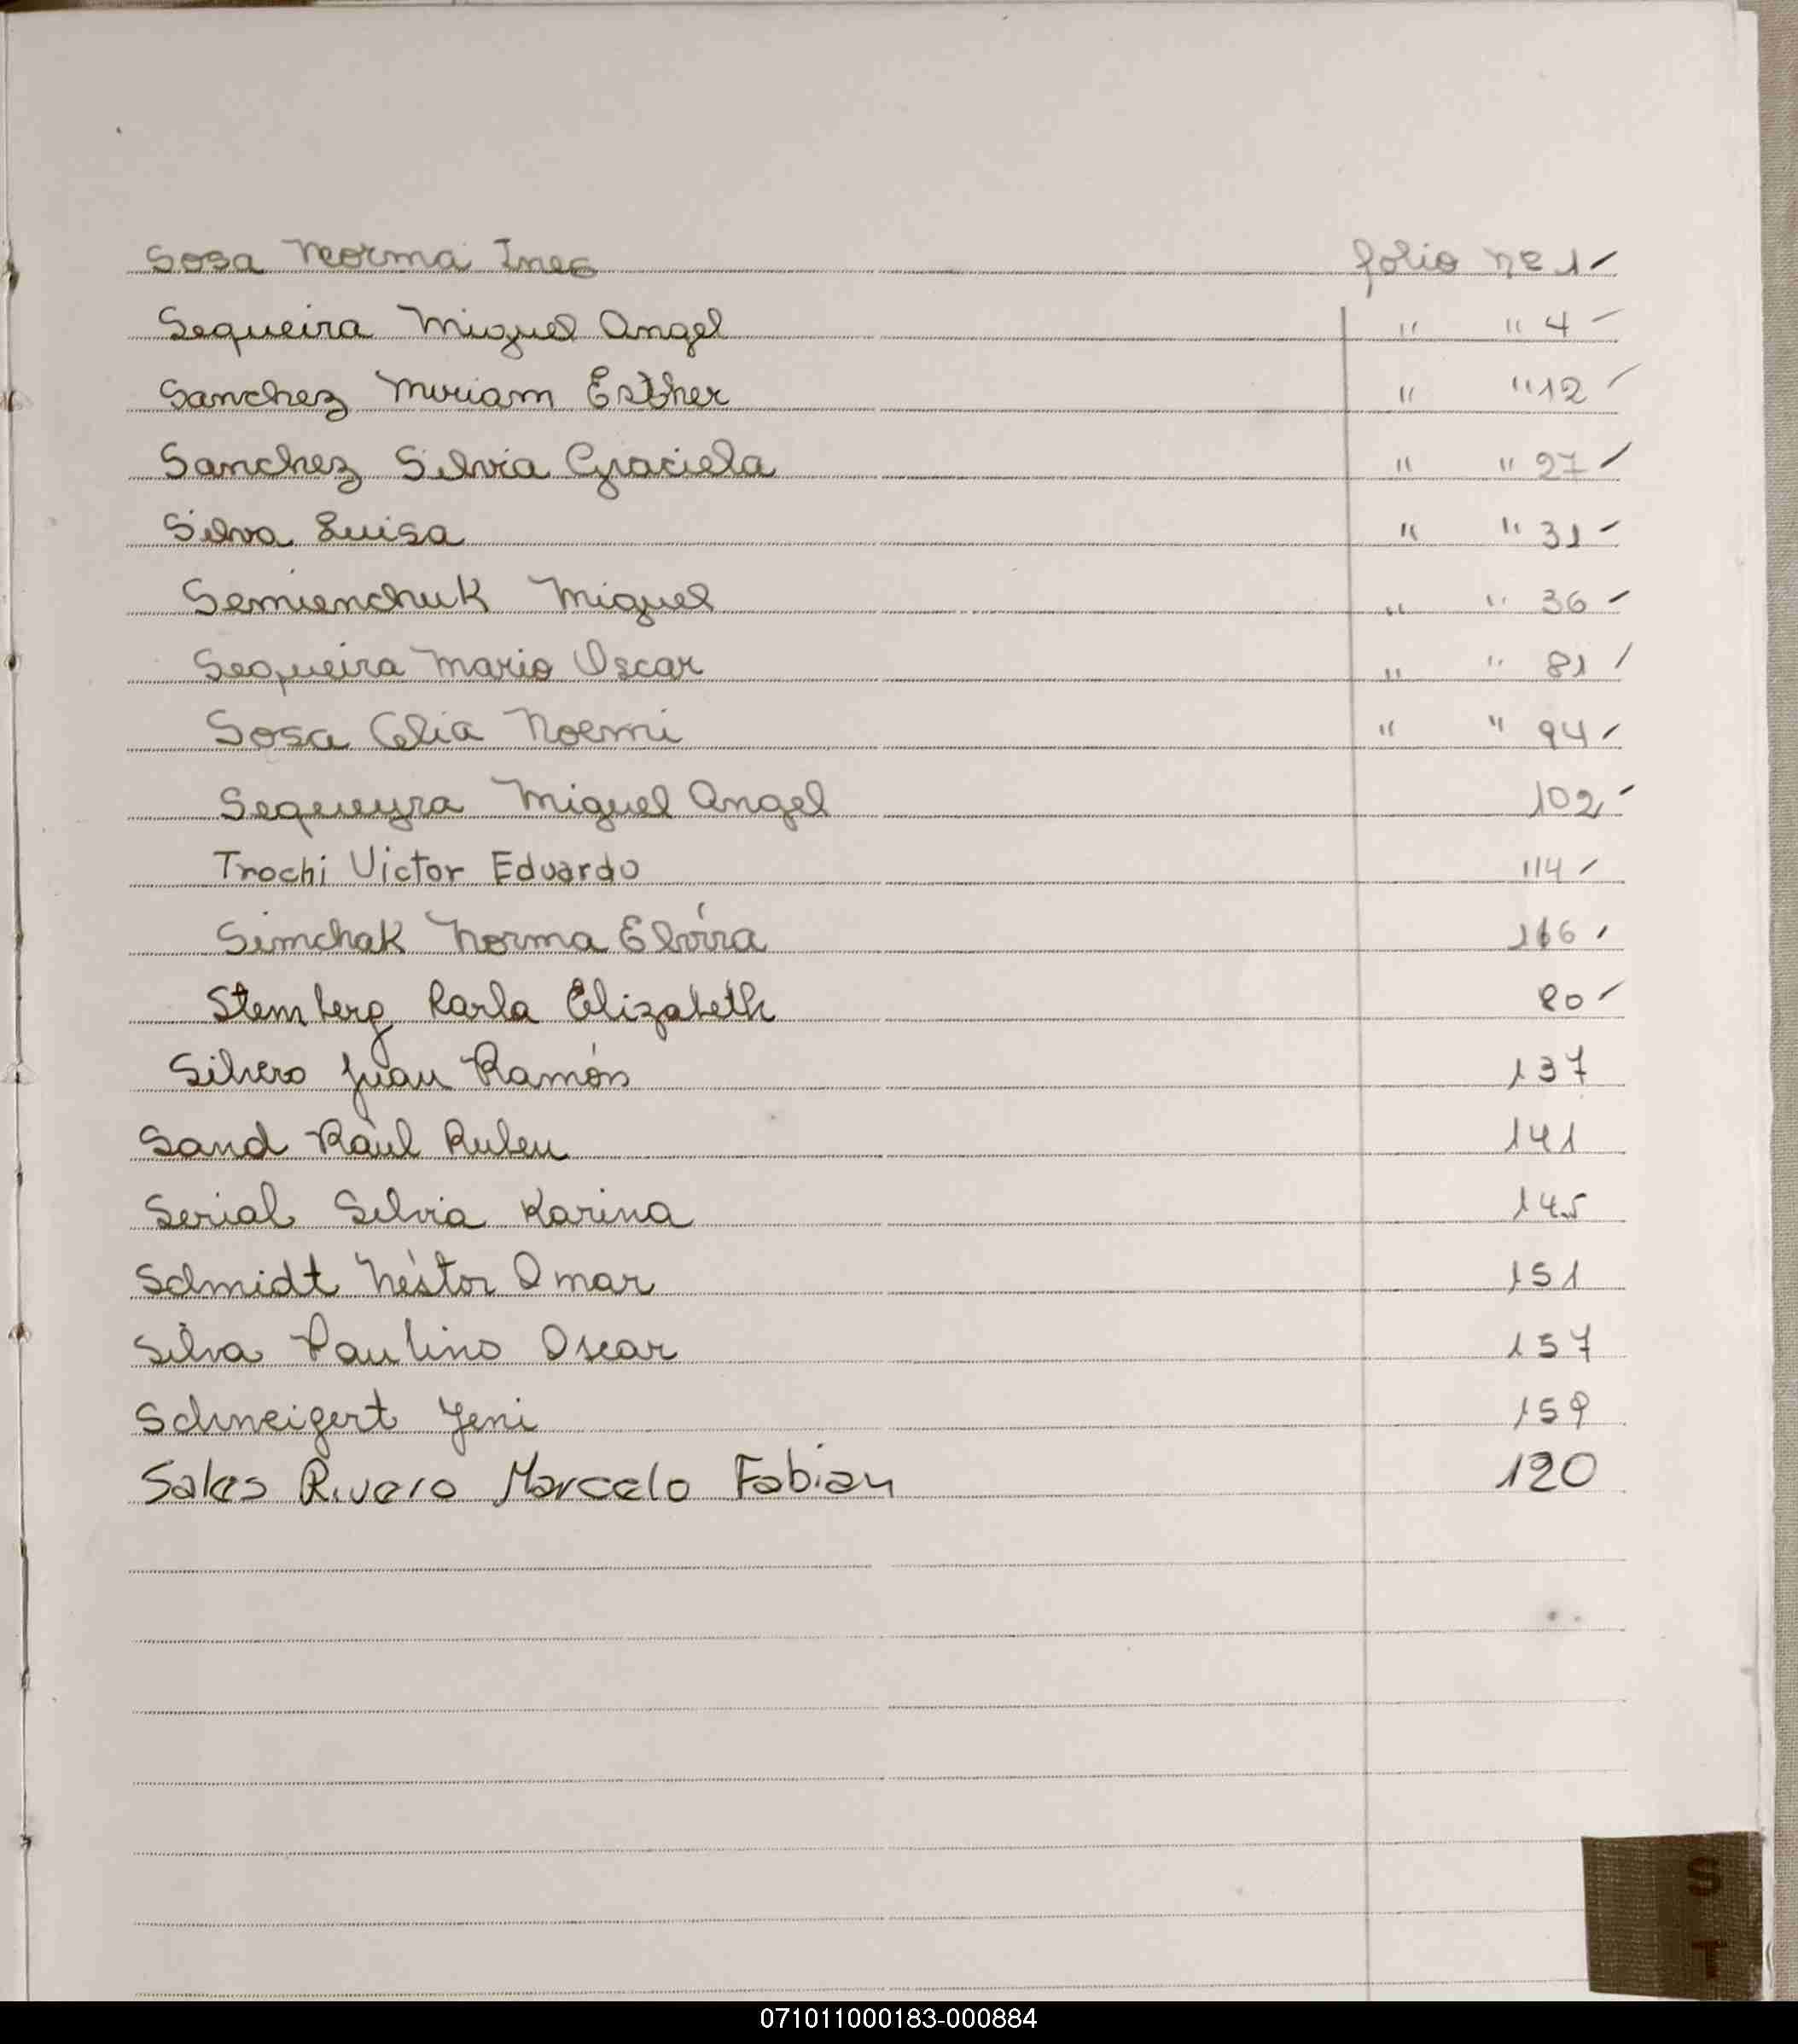 Sosa Norma Ines folio nº 1
Sequeira Miguel Angel " " 4
Sanchez Miriam Esther " " 12
Sanchez Silvia Graciela " " 27
Silva Luisa " " 31
Semienchuk Miguel " " 36
Sequeira Mario Oscar " " 81
Sosa Celia Noemi " " 94
Sequeyra Miguel Angel 102
Trochi Victor Eduardo 114
Simchak Norma Elvira 116
Stemberg Karla Elizabeth 80
Silvero Juan Ramón 137
Sand Raúl Ruben 141
Serial Silvia Karina 145
Schmidt Néstor Omar 151
Silva Paulino Oscar 157
Schneigert Yeni 159
Sales Rivero Marcelo Fabian 120
S
T
071011000183-000884